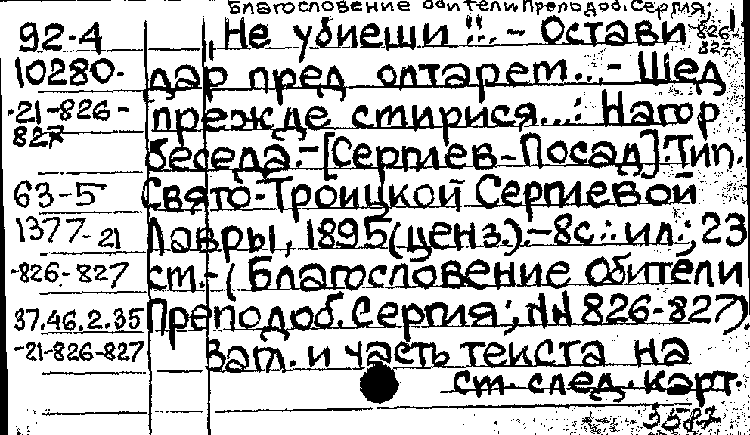 Благословение обители Преподоб. Сергия;
92-4 „Не убиеши"!.. - Остави 826-
827
10280- дар пред олтарем... - Шед
-21-826- прежде смирися...: Нагор
827
беседа. - [Сергиев-Посад]: Тип.
63-5 Свято-Троицкой Сергиевой
1377-21 Лавры, 1895(ценз.). - 8с.: ил.; 23
-826-827 см. - (Благословение обители
37.46.2.35 Преподоб. Сергия; №№ 826-827)
-21-826-827 Загл. и часть текста на
см. след. карт.
3587